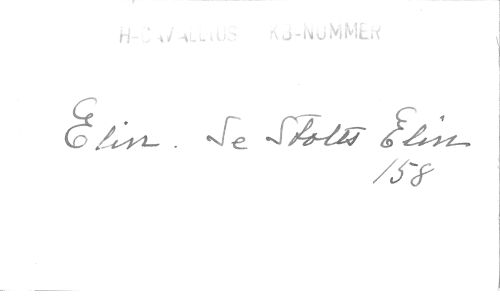 H-CAVALLIUS KB-NUMMER
Elin. Se Stolts Elin
158